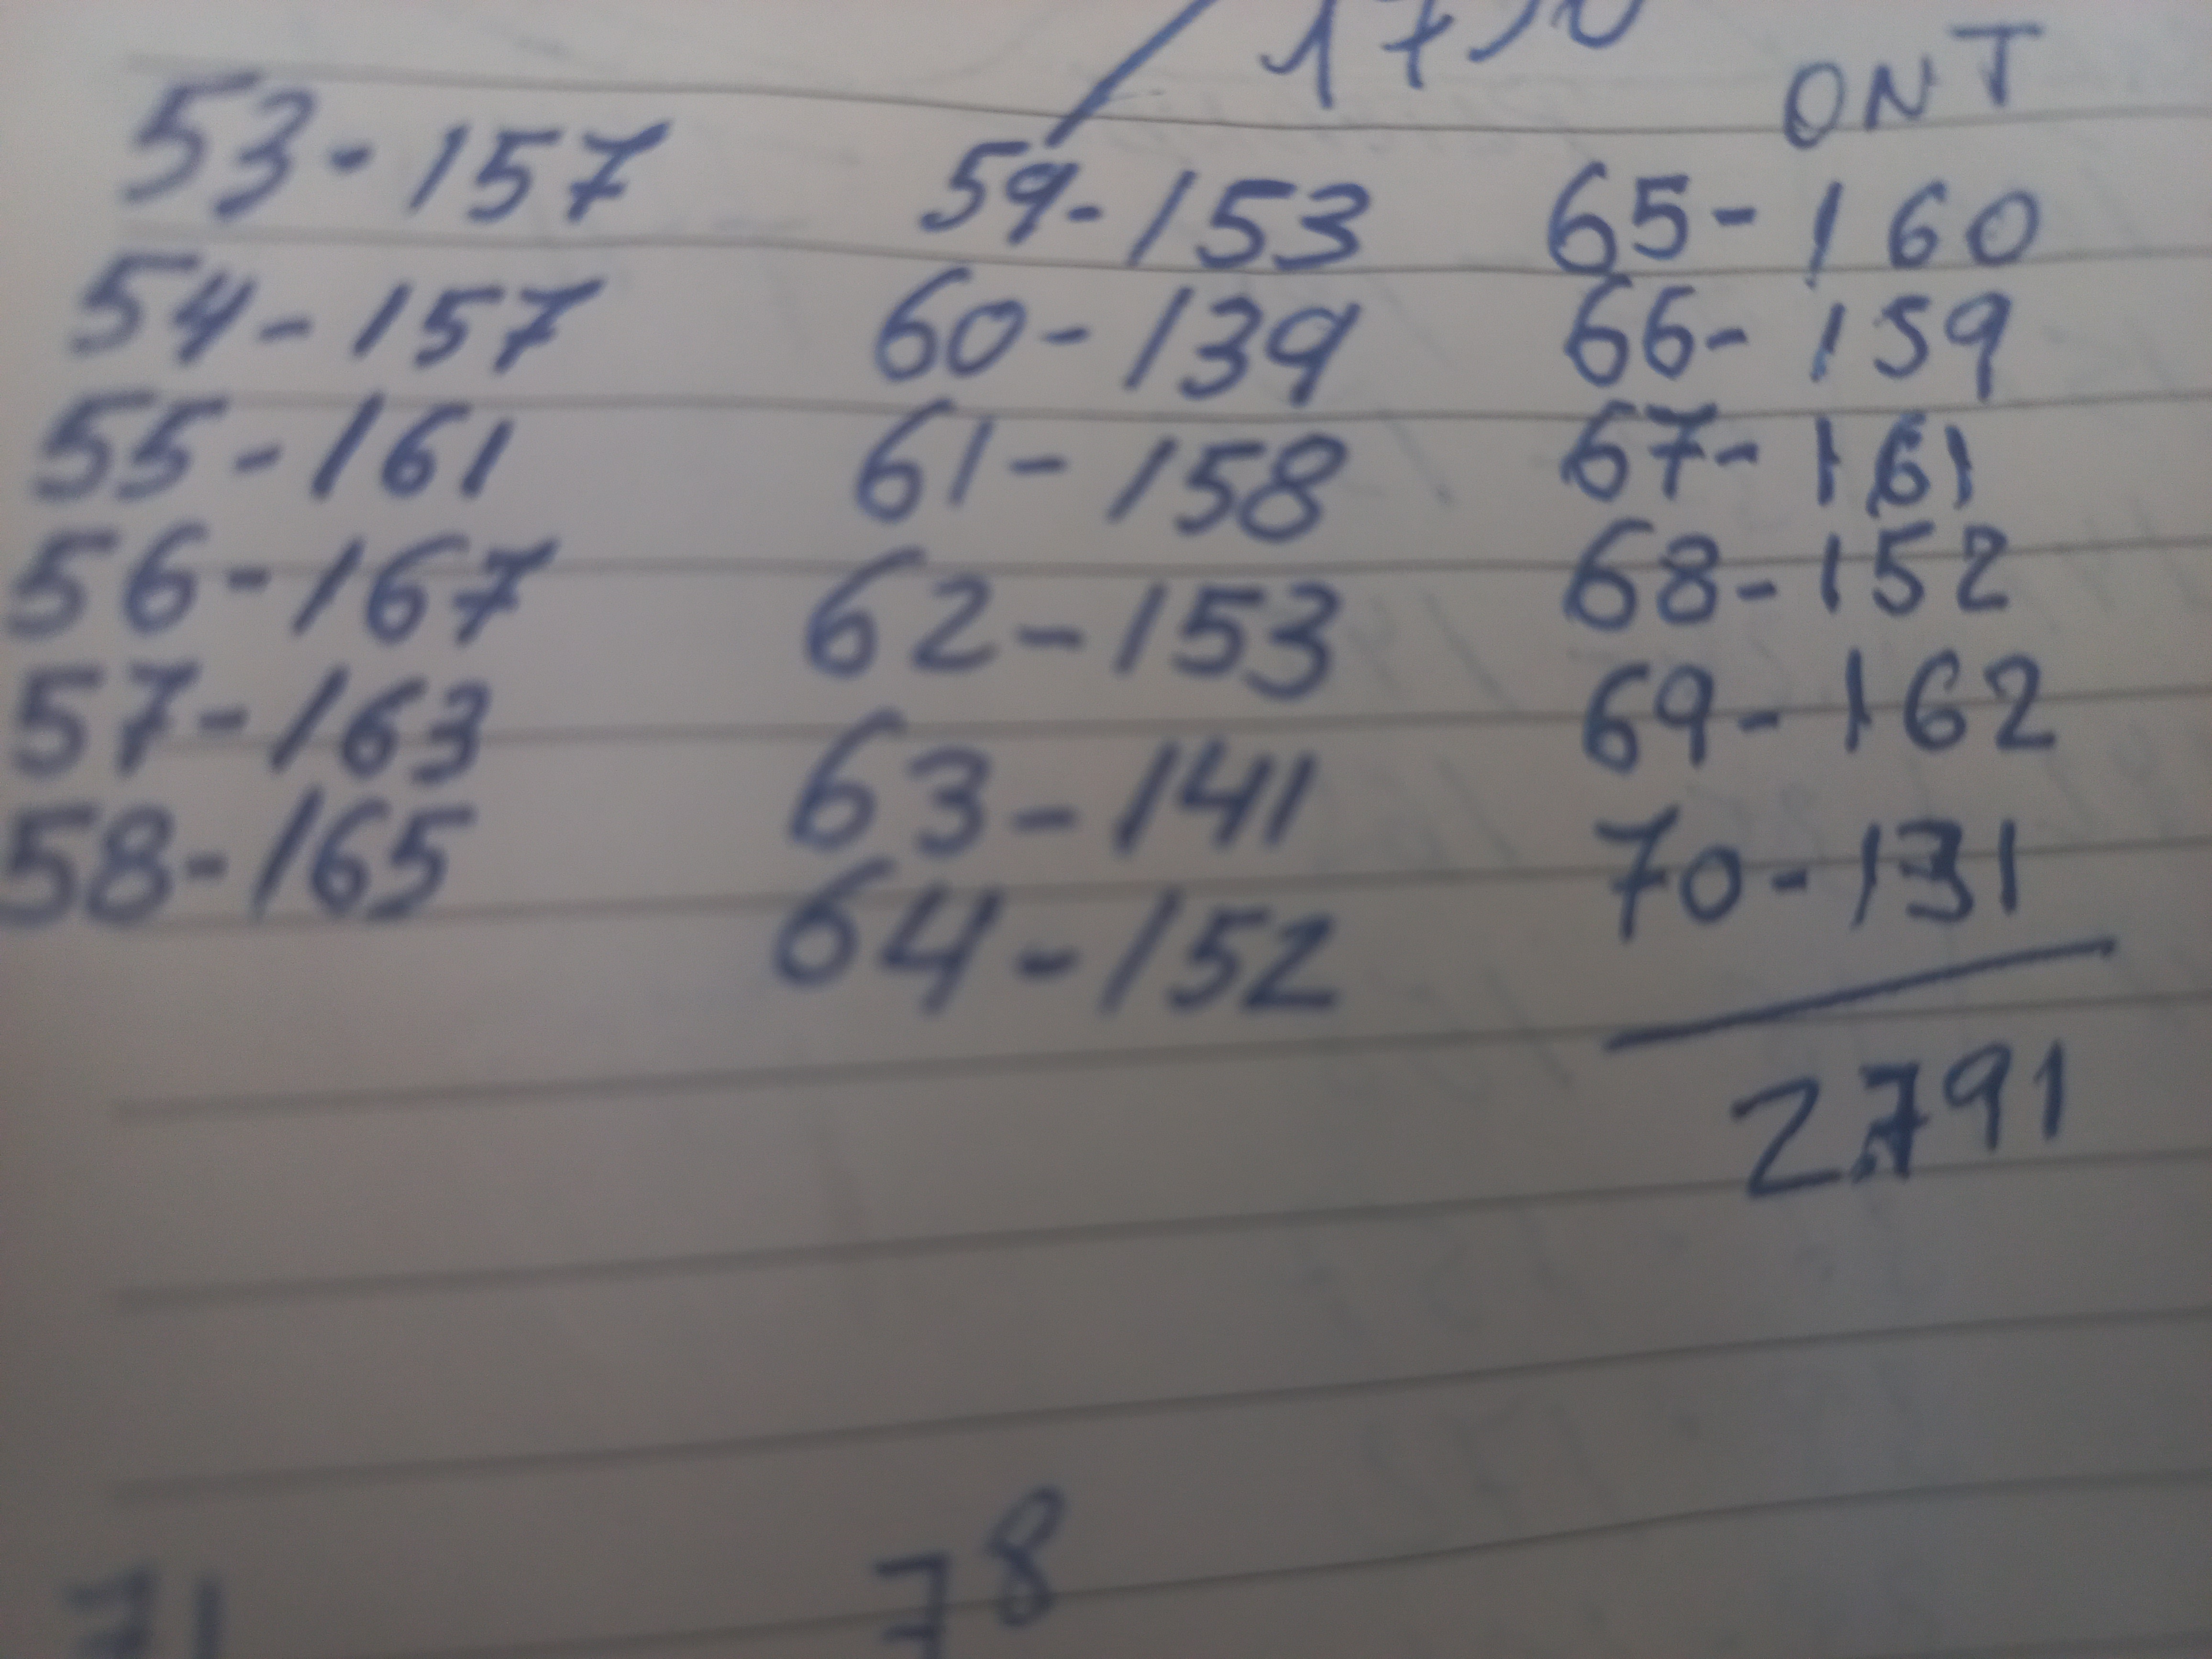 ONT
53-157 59-153 65-160
54-157 60-139 66-159
55-161 61-158 67-161
56-167 62-153 68-152
57-163 63-141 69-162
58-165 64-152 70-131
2791
71 78